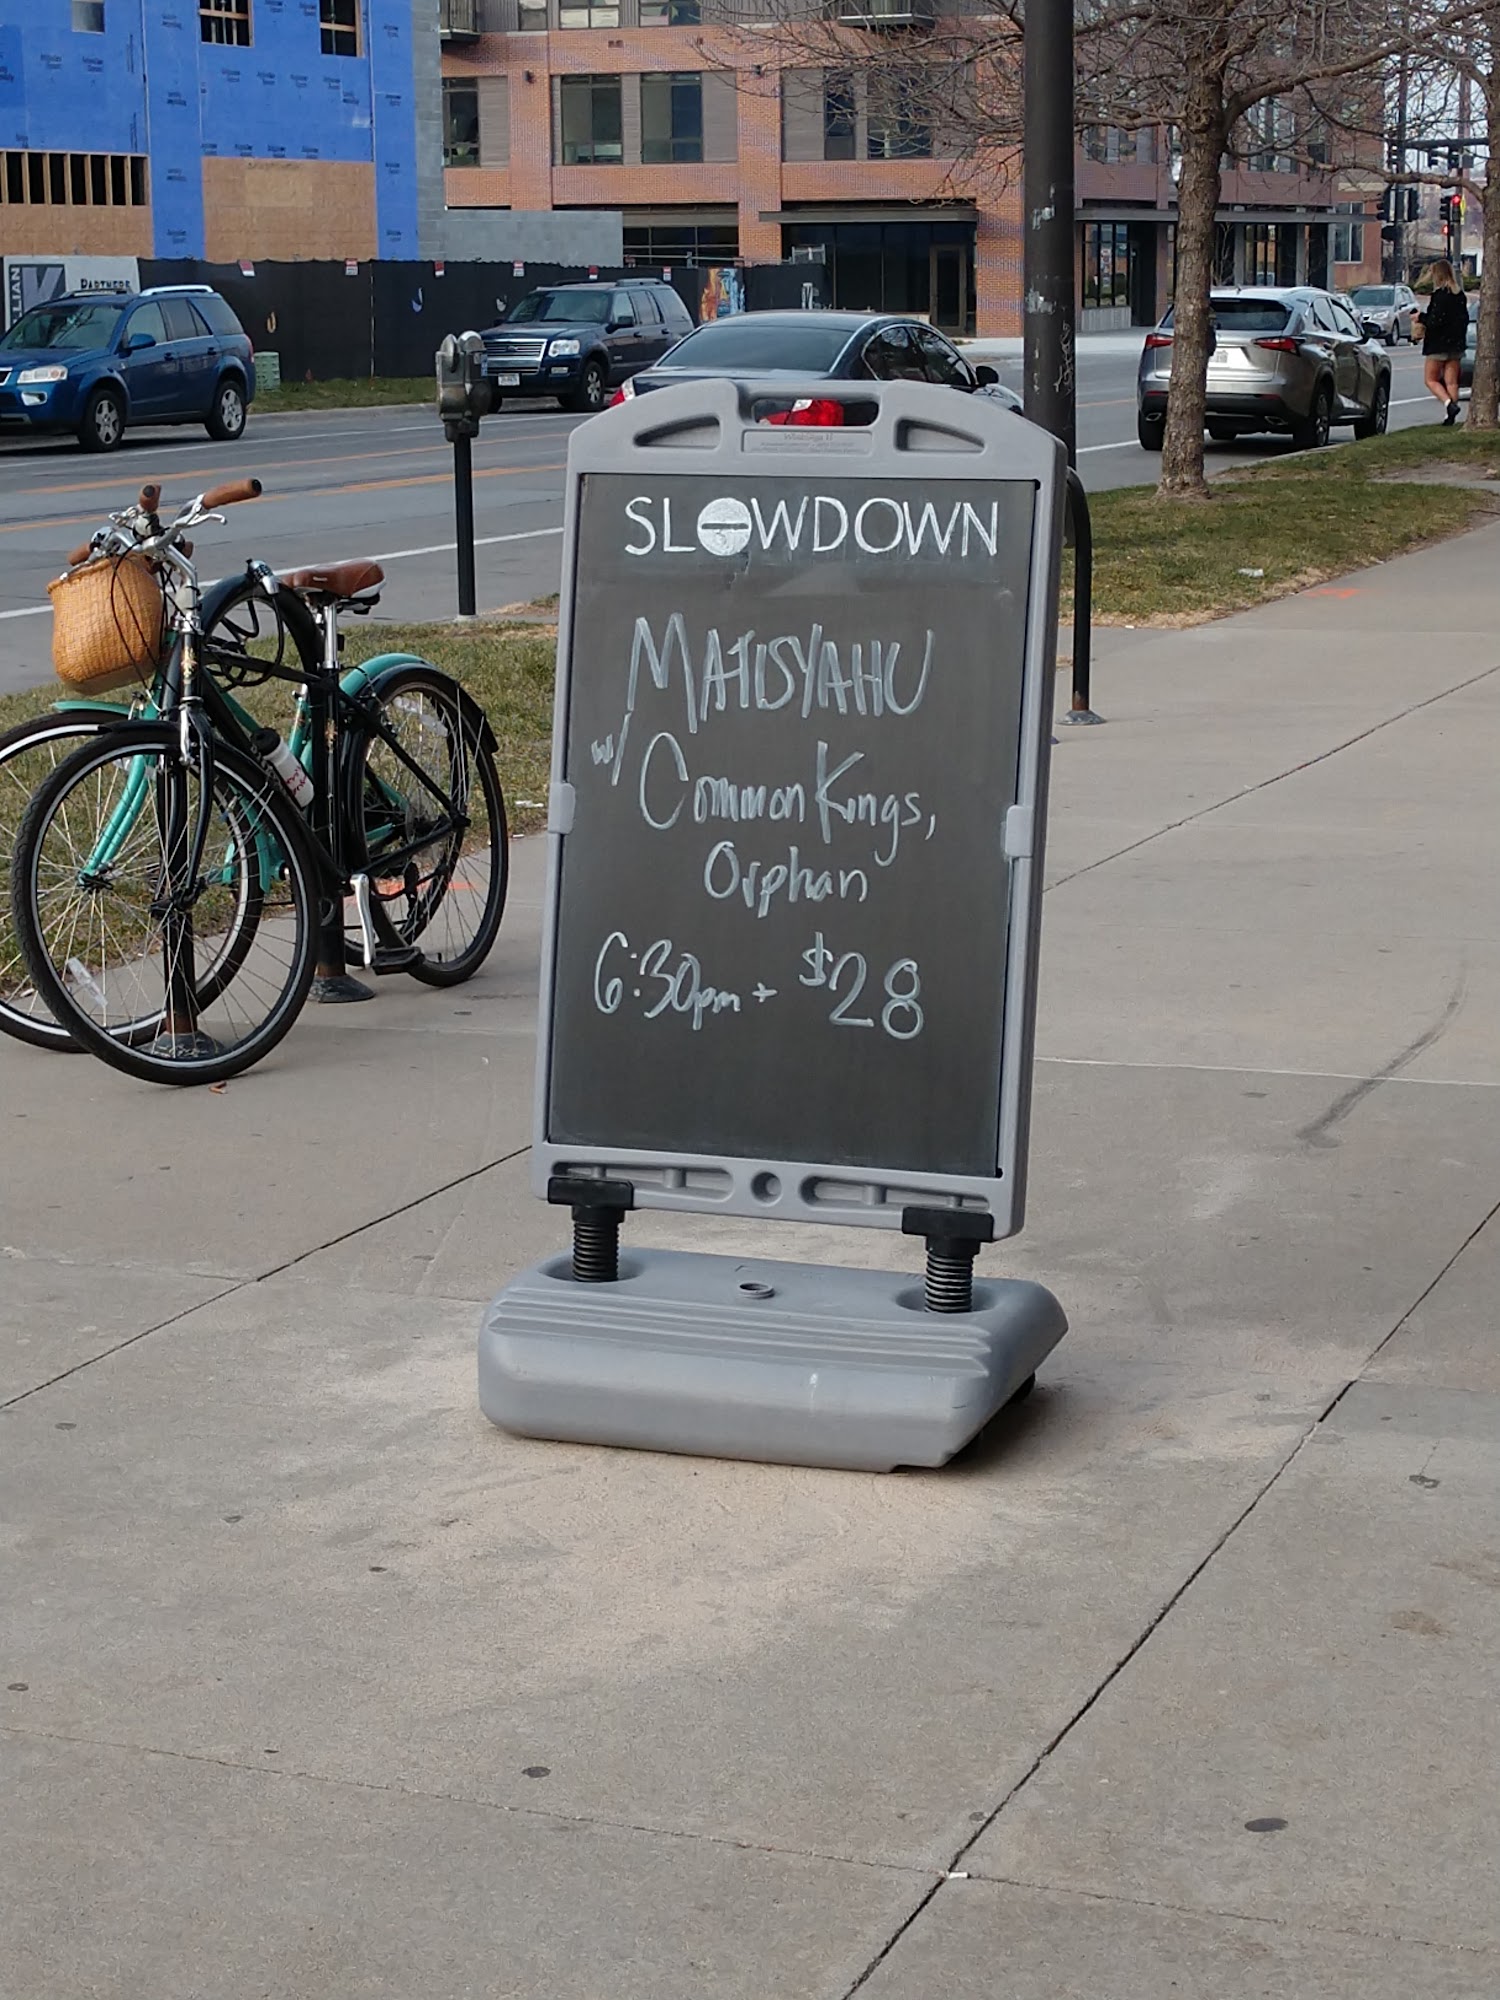 PARTNERS
SLOWDOWN
MATISYAHU
w/ Common Kings,
Orphan
6:30pm + $28